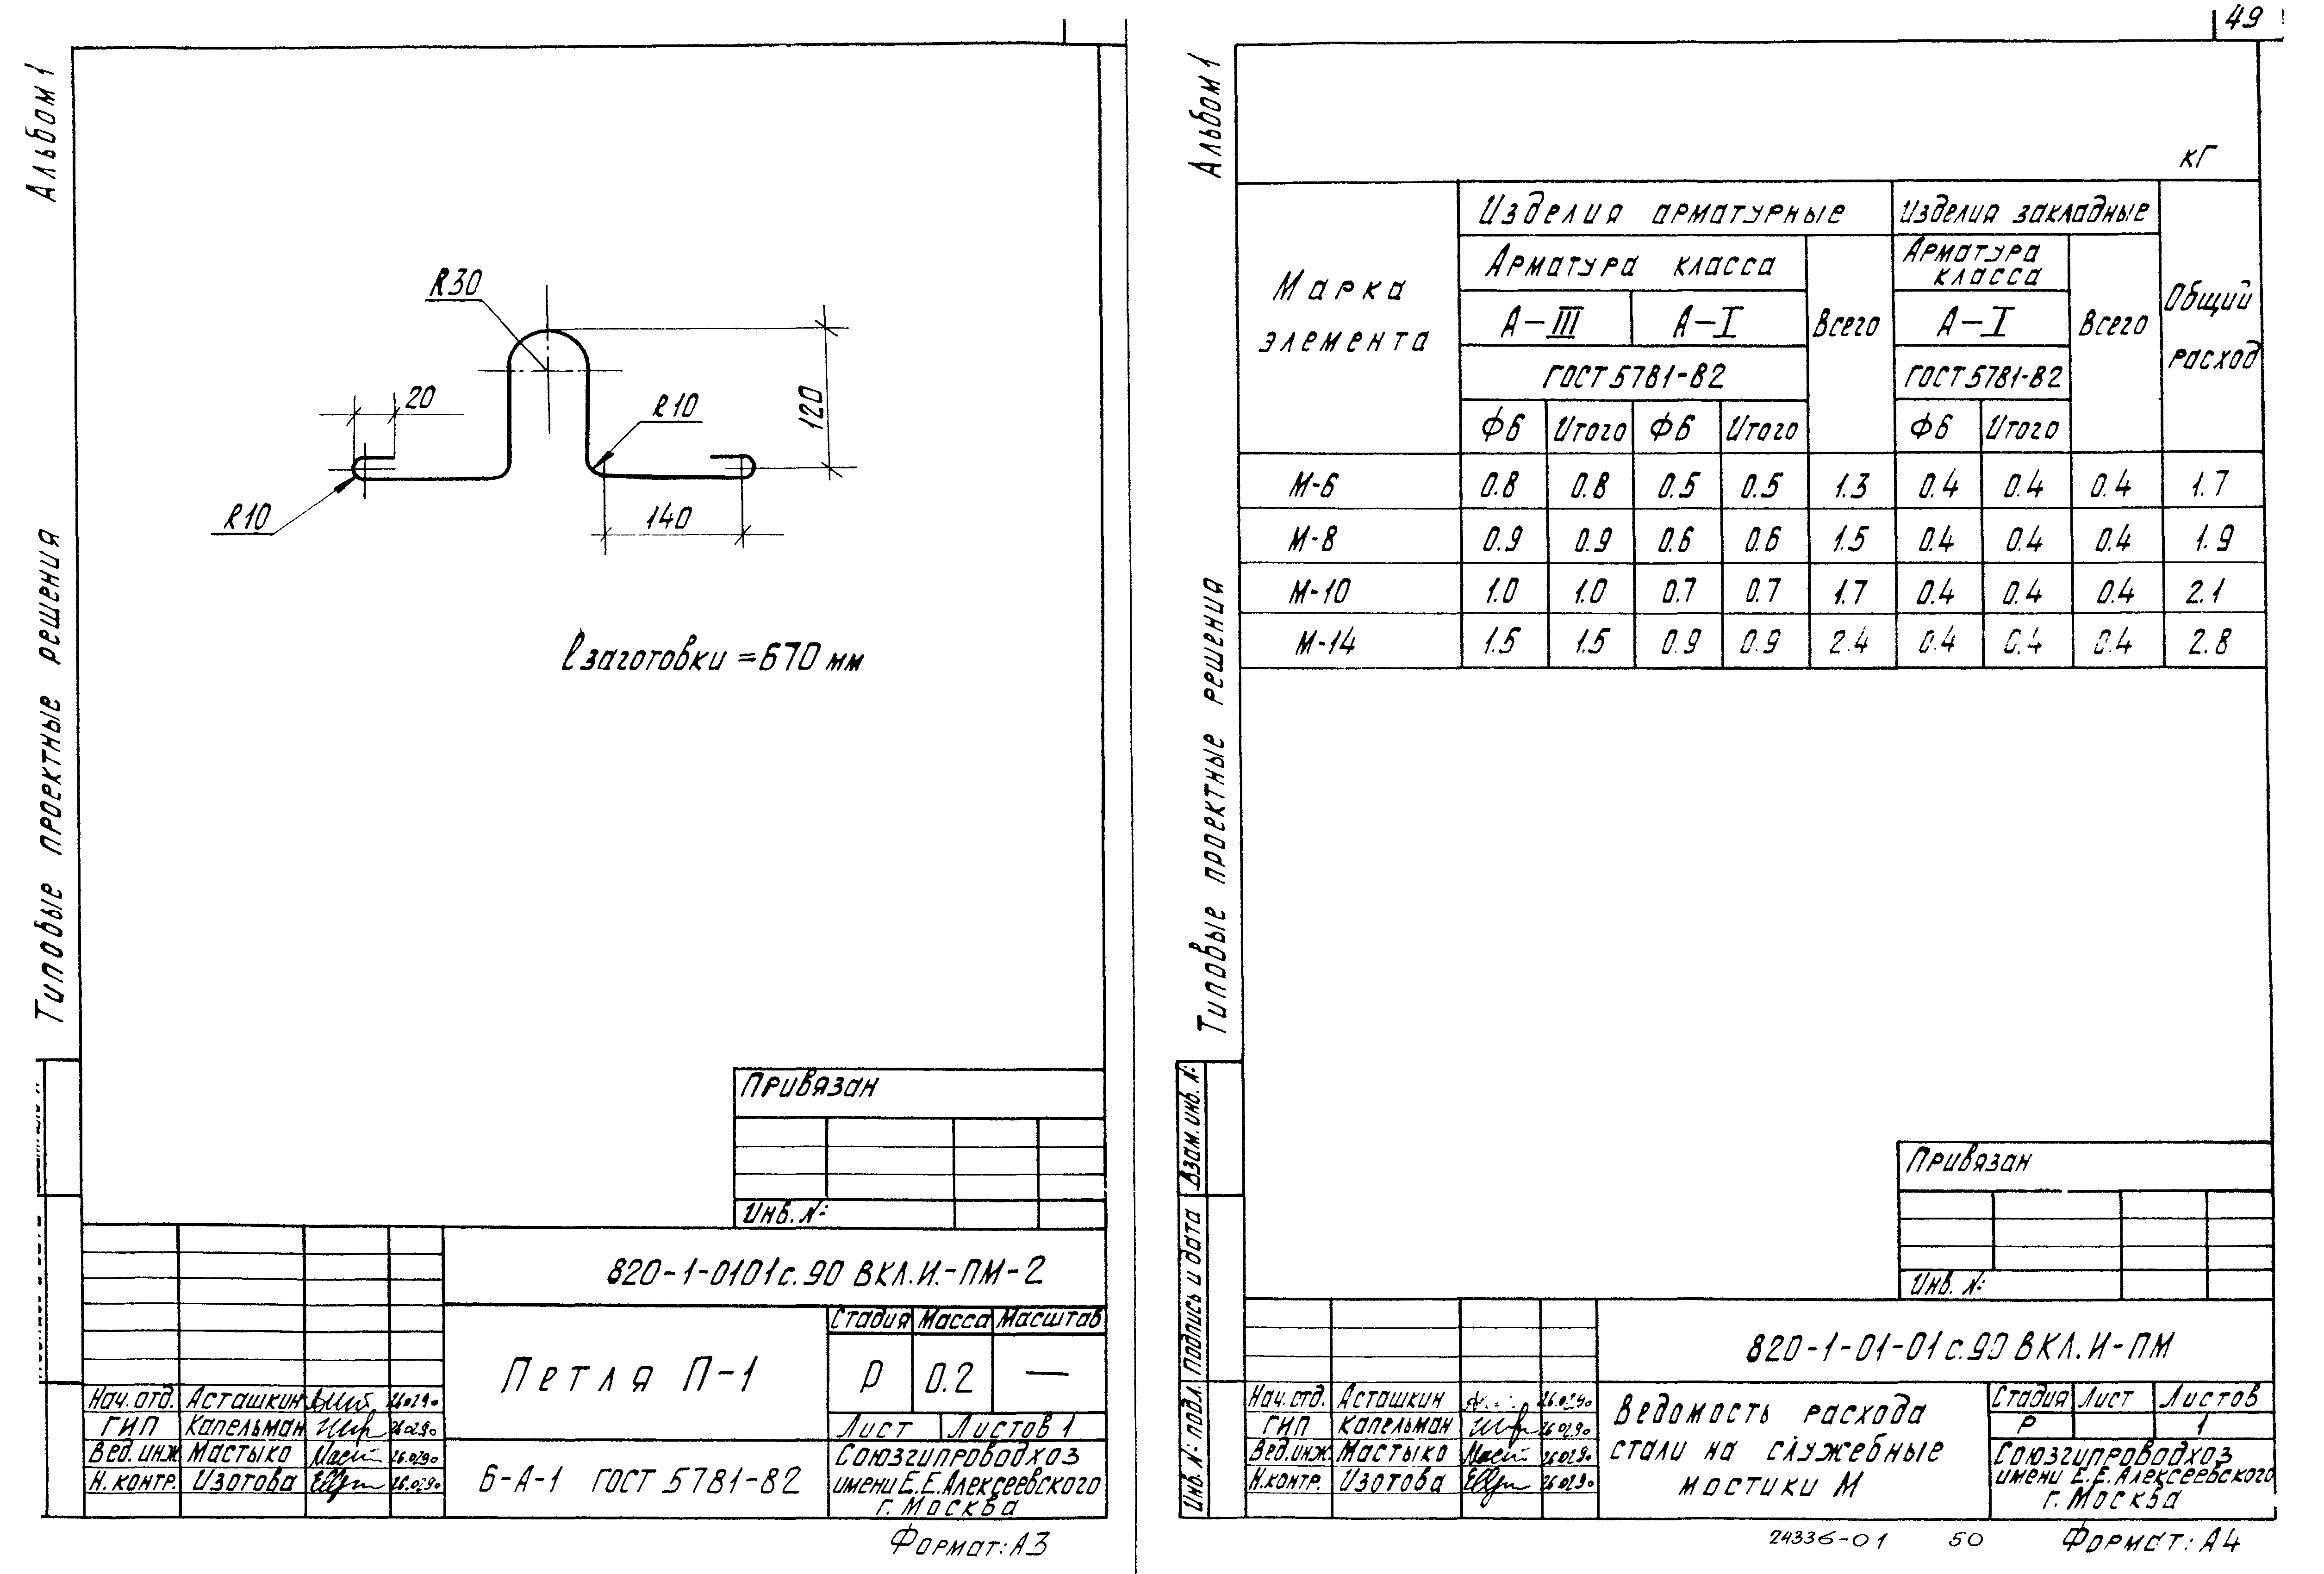 Альбом 1
R30
20
R10
120
R10
140
lзаготовки = 670 мм
Типовые проектные решения
Привязан
Инв. №:
820-1-0101с.90 ВКЛ.И.-ПМ-2
Петля П-1
Стадия Масса Масштаб
Р 0.2 —
Лист Листов 1
Нач. отд. Асташкин 26.02.90
ГИП Капельман 26.02.90
Вед. инж. Мастыко 26.02.90
Н. контр. Изотова 26.02.90
6-А-1 ГОСТ 5781-82
Союзгипроводхоз
имени Е.Е.Алексеевского
г. Москва
Формат: А3
49
Альбом 1
кг
Марка элемента
Изделия арматурные
Изделия закладные
Общий расход
Арматура класса
Всего
Арматура класса
Всего
А-III А-I А-I
ГОСТ 5781-82 ГОСТ 5781-82
Ф6 Итого Ф6 Итого Ф6 Итого
М-6 0.8 0.8 0.5 0.5 1.3 0.4 0.4 0.4 1.7
М-8 0.9 0.9 0.6 0.6 1.5 0.4 0.4 0.4 1.9
М-10 1.0 1.0 0.7 0.7 1.7 0.4 0.4 0.4 2.1
М-14 1.5 1.5 0.9 0.9 2.4 0.4 0.4 0.4 2.8
Типовые проектные решения
Взам. инв. №:
Подпись и дата
Инв. №: подл.
Привязан
Инв. №:
820-1-01-01с.90 ВКЛ.И-ПМ
Нач. отд. Асташкин 26.02.90
ГИП Капельман 26.02.90
Вед. инж. Мастыко 26.02.90
Н. контр. Изотова 26.02.90
Ведомость расхода
стали на служебные
мостики М
Стадия Лист Листов
Р 1
Союзгипроводхоз
имени Е.Е.Алексеевского
г. Москва
24336-01 50 Формат: А4